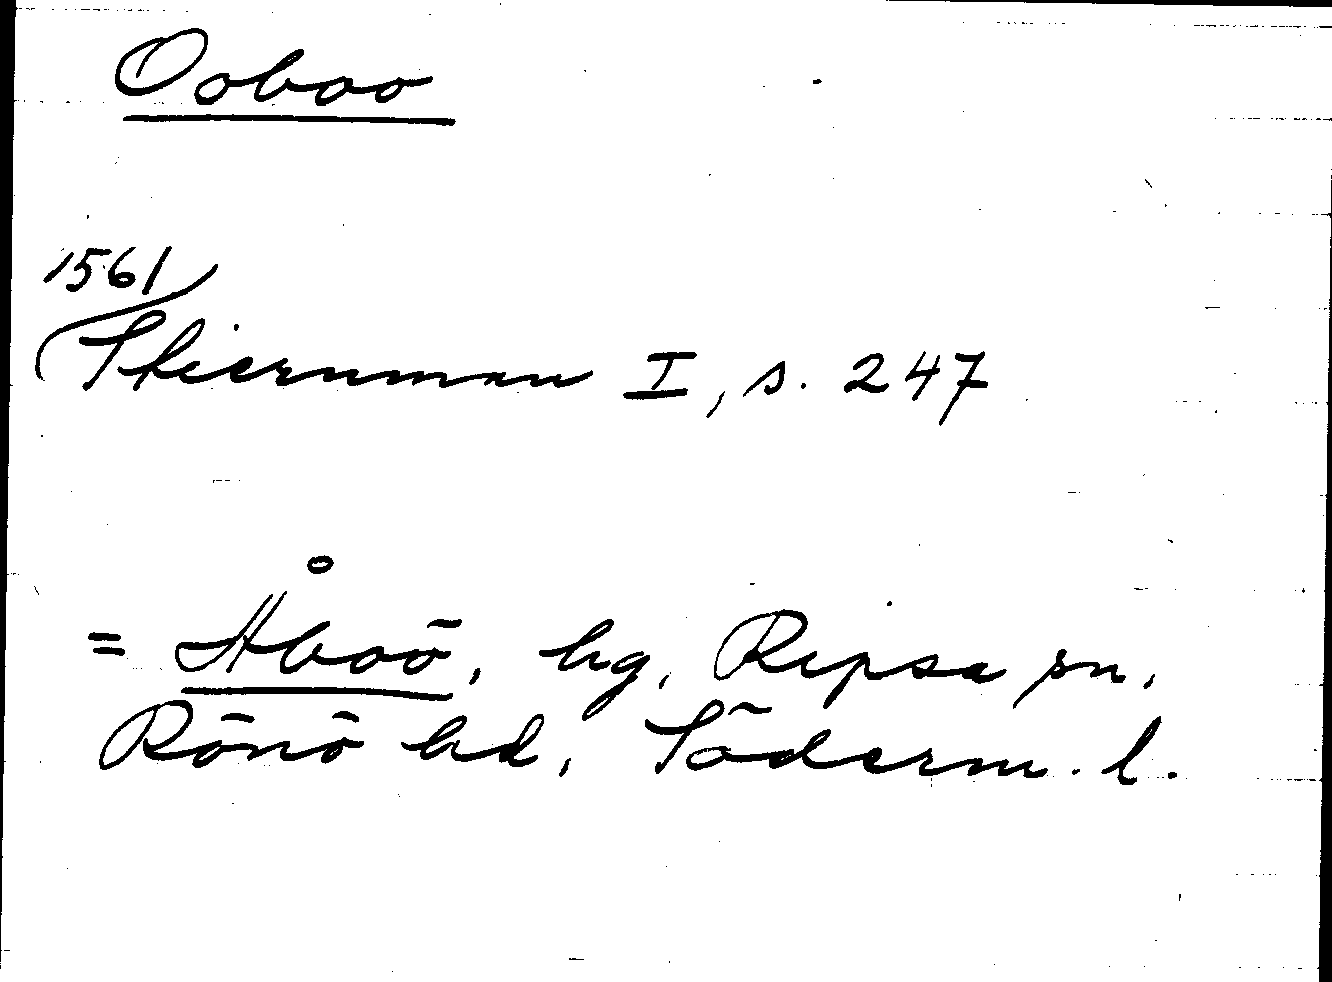 Ooboo
1561
Stiernman I, s. 247
= Åboö, hg, Ripsa sn,
Rönö hd, Söderm. l.